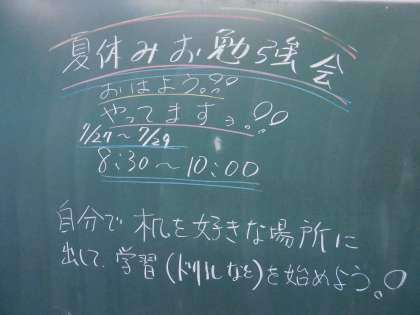 夏休みお勉強会
おはよう!!
やってますっ!!
7/27〜7/29
8:30〜10:00
自分で机を好きな場所に
出して、学習(ドリルなど)を始めよう!